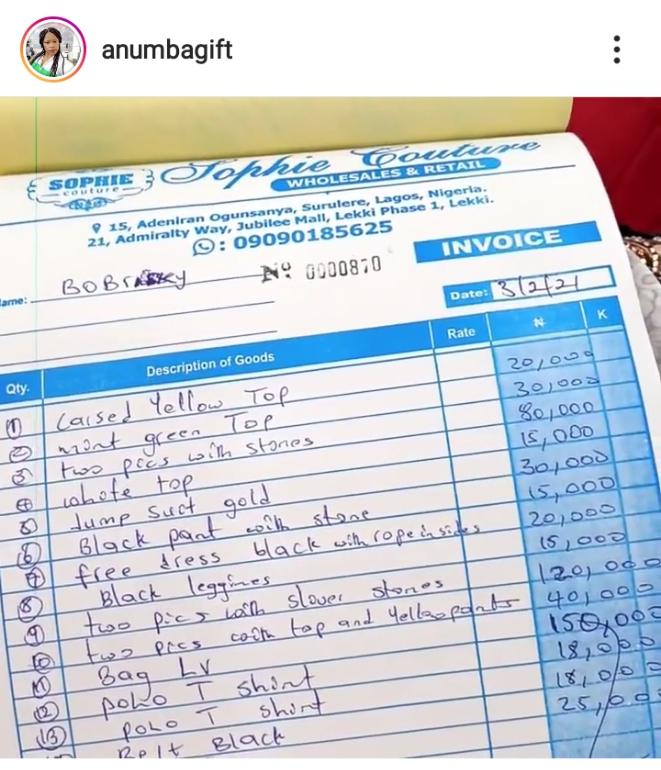 anumbagift
SOPHIE
couture
Sophie Couture
WHOLESALES & RETAIL
15, Adeniran Ogunsanya, Surulere, Lagos, Nigeria.
21, Admiralty Way, Jubilee Mall, Lekki Phase 1, Lekki.
: 09090185625
INVOICE
ame: BOBrisky
Nº 0000870
Date: 3/2/21
Qty. Description of Goods Rate ₦ K
1 Laised Yellow Top 20,000
2 mint green Top 30,000
3 two pccs with stones 80,000
4 white top 15,000
5 Jump suit gold 30,000
6 Black pant with stone 15,000
7 free dress black with rope in sides 20,000
8 Black leggines 15,000
9 two pics with slover stones 120,000
10 two pccs with top and Yellow pants 40,000
11 Bag LV 150,000
12 polo T shirt 18,000
13 polo T shirt 18,000
Belt Black 25,000